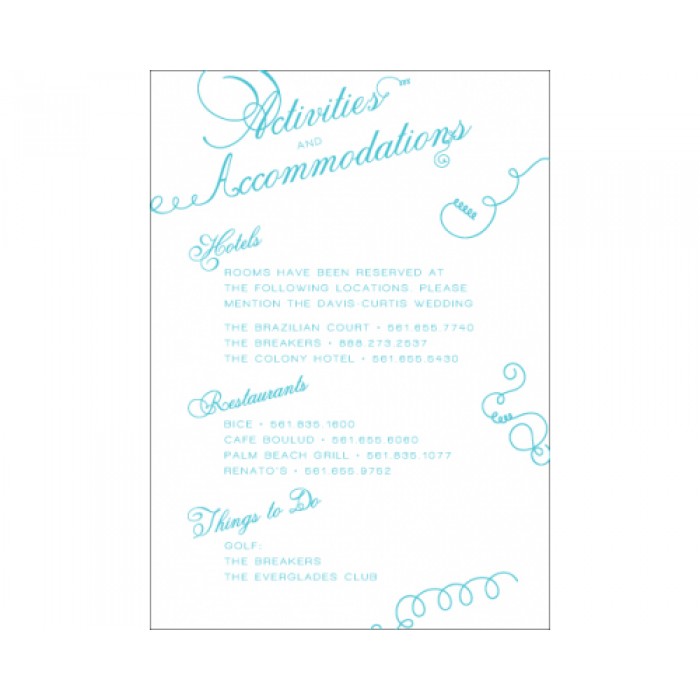 Activities
AND
Accommodations
Hotels
ROOMS HAVE BEEN RESERVED AT
THE FOLLOWING LOCATIONS. PLEASE
MENTION THE DAVIS-CURTIS WEDDING
THE BRAZILIAN COURT • 561.655.7740
THE BREAKERS • 888.273.2537
THE COLONY HOTEL • 561.655.5430
Restaurants
BICE • 561.835.1600
CAFE BOULUD • 561.655.6060
PALM BEACH GRILL • 561.835.1077
RENATO'S • 561.655.9752
Things to Do
GOLF:
THE BREAKERS
THE EVERGLADES CLUB